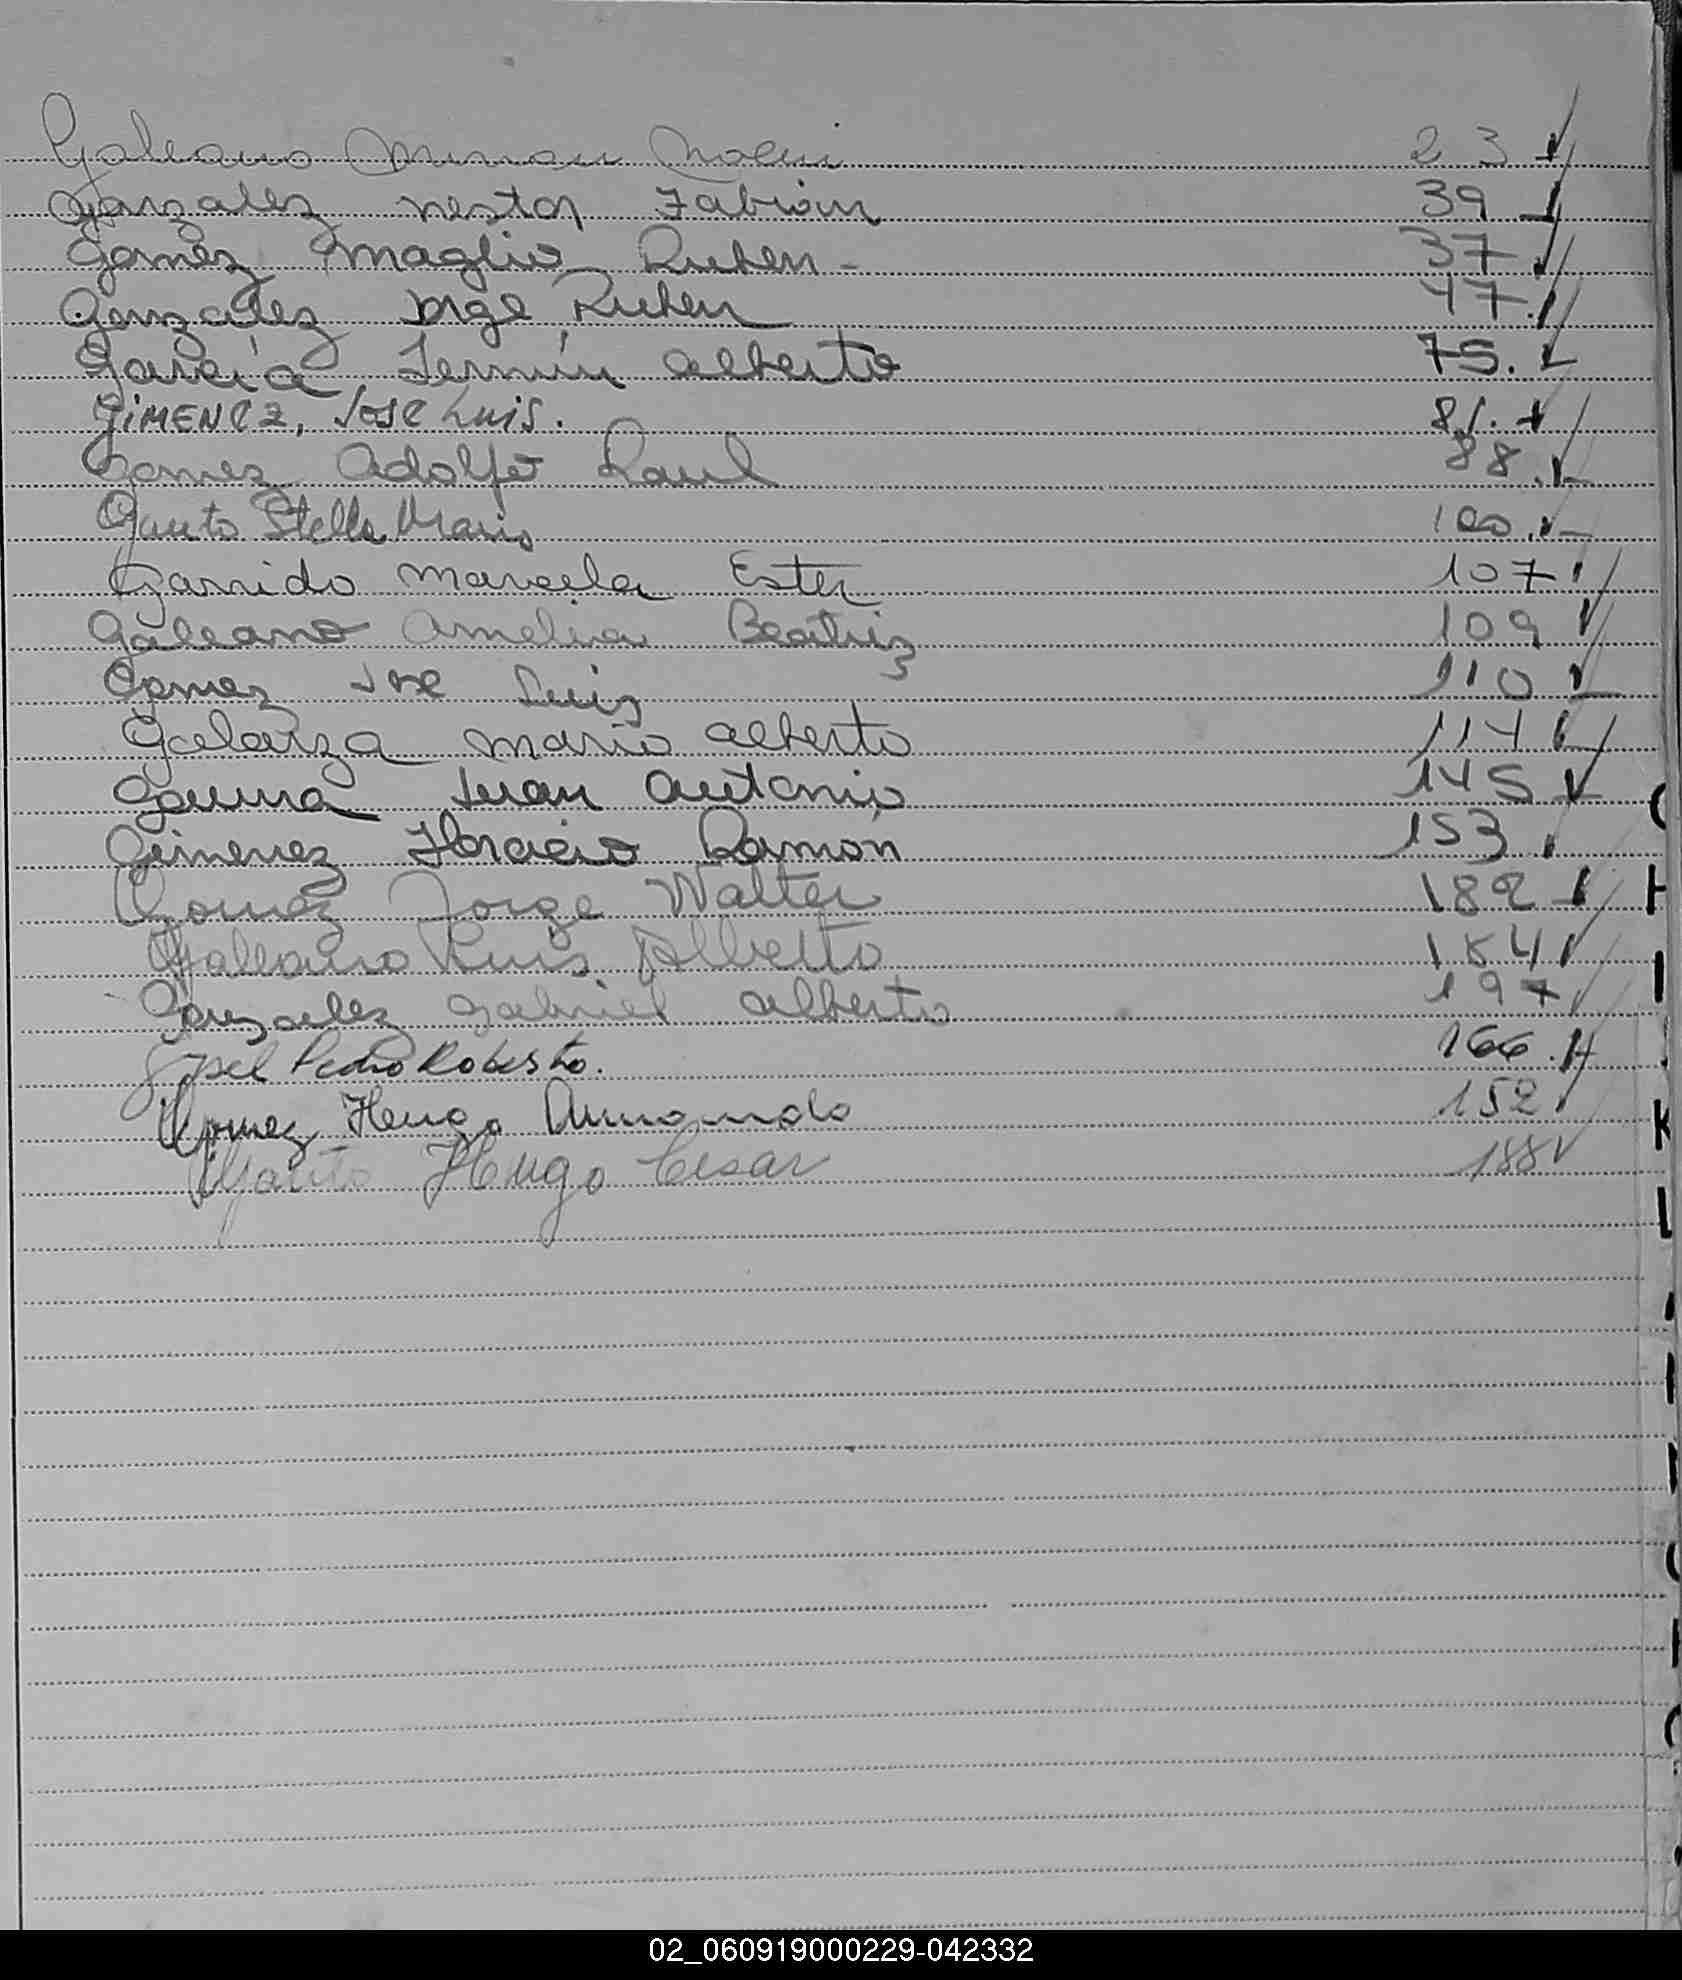 Galeano Mirian Noemi 23
Gonzalez nestor Fabian 39
Gomez maglio Ruben - 37
Gonzalez Jorge Ruben 47.
García, Fermín alberto 75.
GIMENEZ, JOSE LUIS. 81.
Gomez Adolfo Raul 88.
Gauto Stella Maris 100.
Garrido marcela Ester 107
Galeano Amelia Beatriz 109
Gomez Jose Luis 110
Galarza mario alberto 114
Gauna Juan Antonio 145
Gimenez Horacio Ramón 153
Gomez Jorge Walter 182
Galeano Luis Alberto 184
Gonzalez Gabriel alberto 197
Pedro Roberto. 166.
Gomez Hugo Armando 152
Gauto Hugo Cesar 188
H
I
K
L
02_060919000229-042332